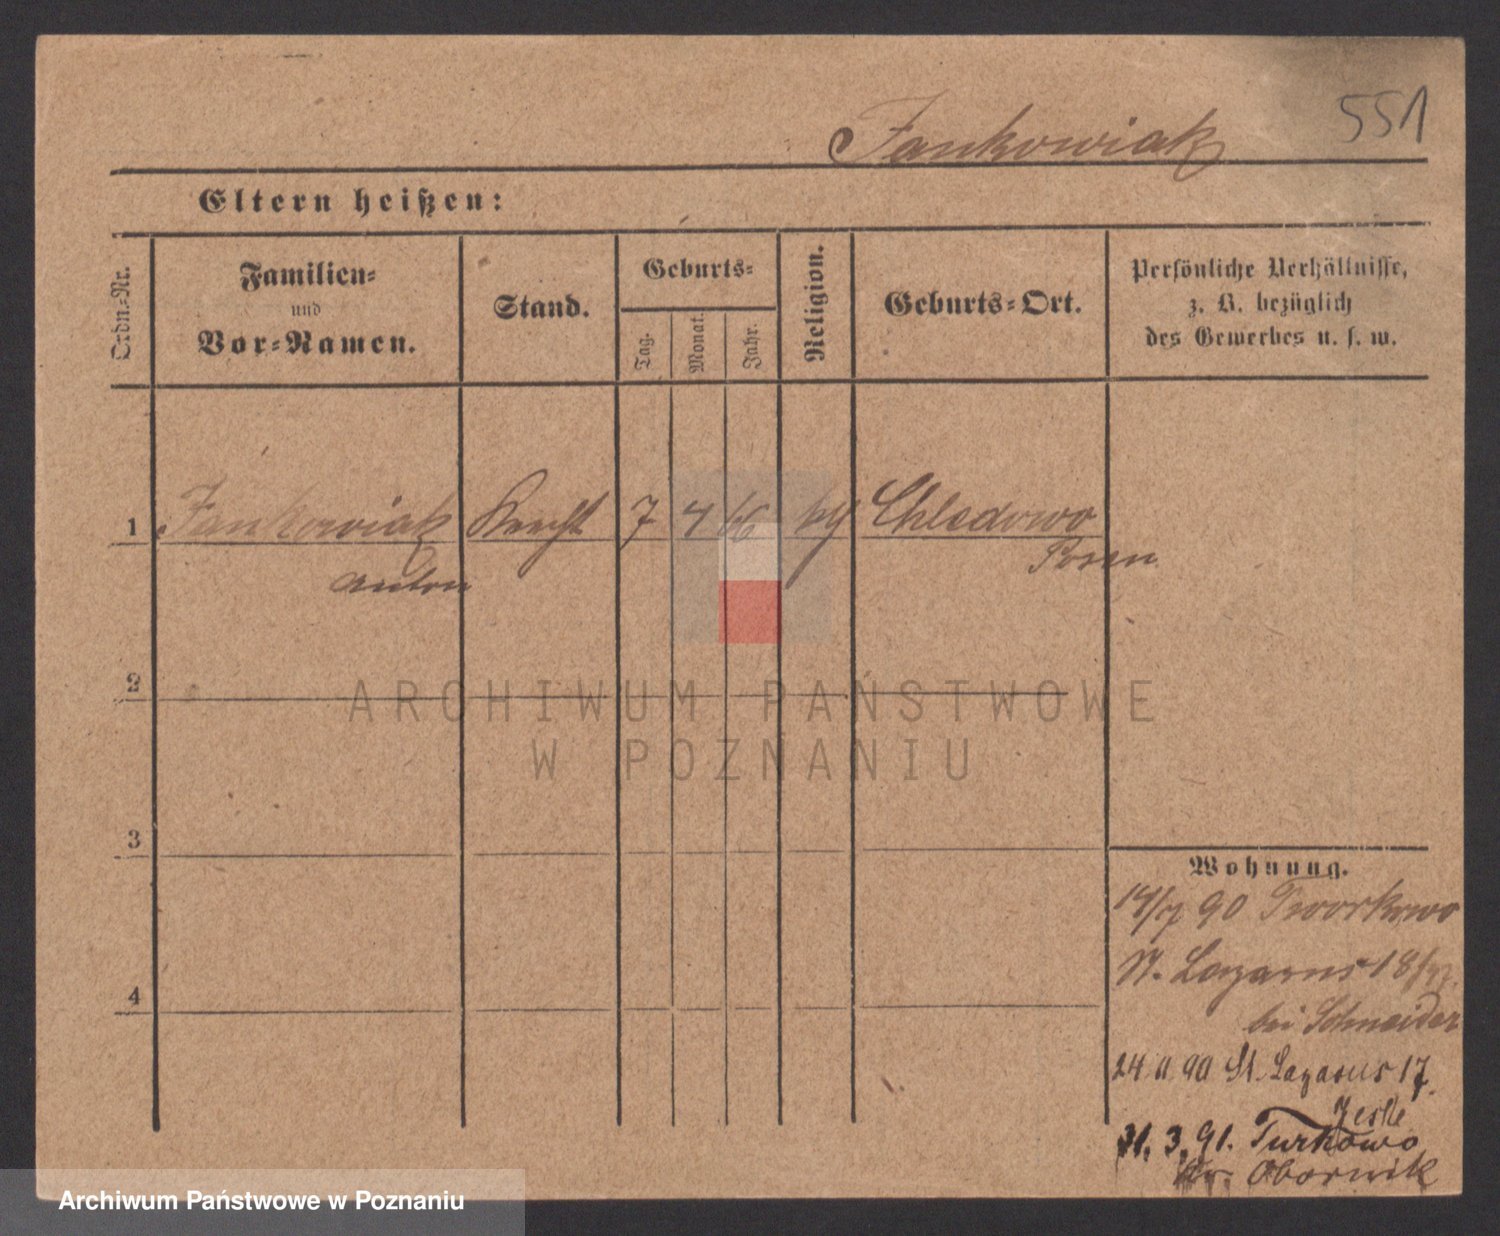 551
Jankowiak
Eltern heißen:
Ordn.-Nr.
Familien-
und
Vor-Namen.
Stand.
Geburts-
Tag.
Monat.
Jahr.
Religion.
Geburts-Ort.
Persönliche Verhältnisse,
z. B. bezüglich
des Gewerbes u. s. w.
1 Jankowiak Knecht 7 4 66 Chledowo
Anton Posen
2
ARCHIWUM PAŃSTWOWE
W POZNANIU
3
4
Wohnung.
14/7 90 Tworkowo
St. Lazarus 18
bei Schneider
24 11 90 St. Lazarus 17.
Jeske
31. 3. 91. Turkowo
Kr. Obornik
Archiwum Państwowe w Poznaniu